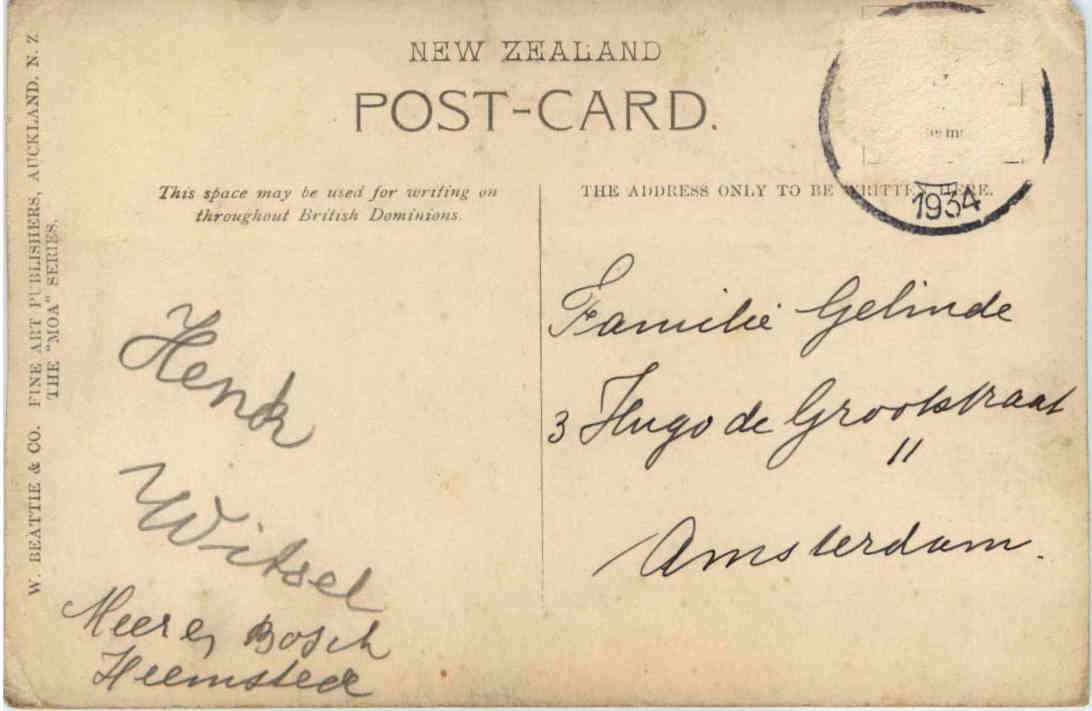 NEW ZEALAND
POST-CARD.
This space may be used for writing on
throughout British Dominions.
THE ADDRESS ONLY TO BE WRITTEN HERE.
1934
W. BEATTIE & CO. FINE ART PUBLISHERS, AUCKLAND. N. Z
THE "MOA" SERIES.
Henk
Witsel
Meer en Bosch
Heemstede
Familie Gelinde
3 Hugo de Grootstraat
11
Amsterdam.